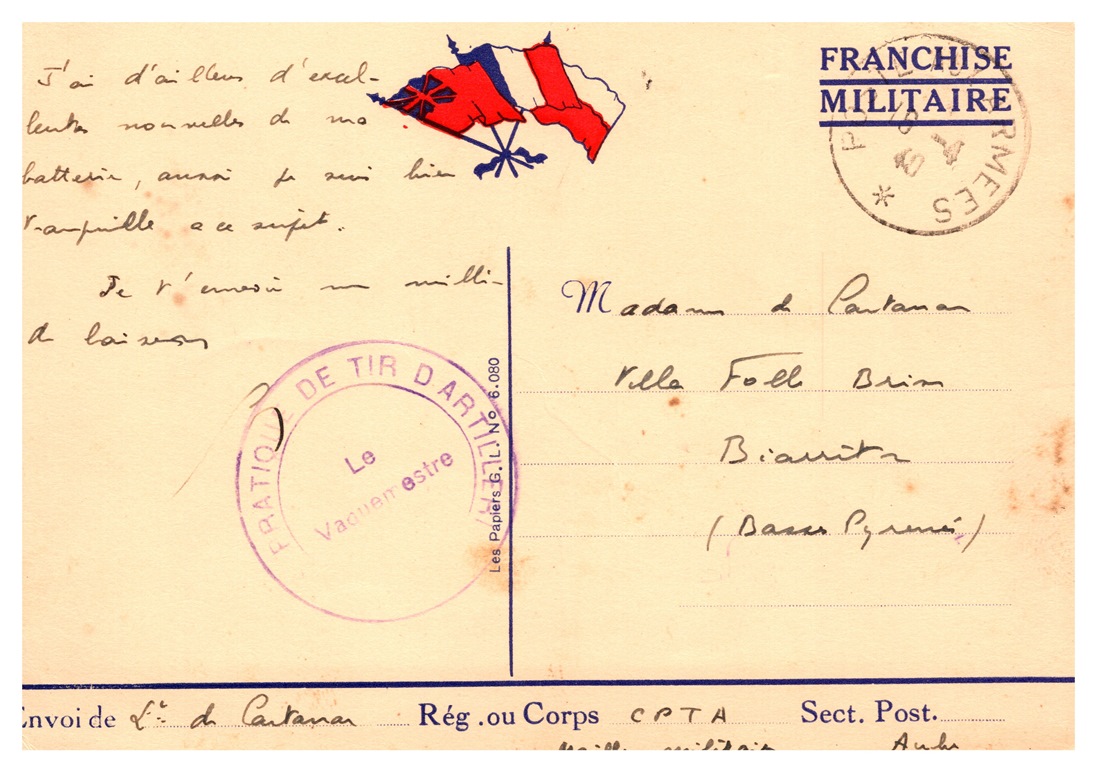 J'ai d'ailleurs d'excel-
lentes nouvelles de ma
batterie, aussi je suis bien
tranquille a ce sujet.
Je t'envoie un milli-
de baisers
FRANCHISE
MILITAIRE
POSTE AUX ARMEES
PRATIQUE DE TIR D'ARTILLERI
Le
Vaguemestre
Les Papiers G. L. No 6.080
Madame de
Villa Folle Brise
Biarritz
(Basses Pyrenées)
Envoi de Lt de
Rég. ou Corps CPTA
Sect. Post.
Mailly militaire Aube